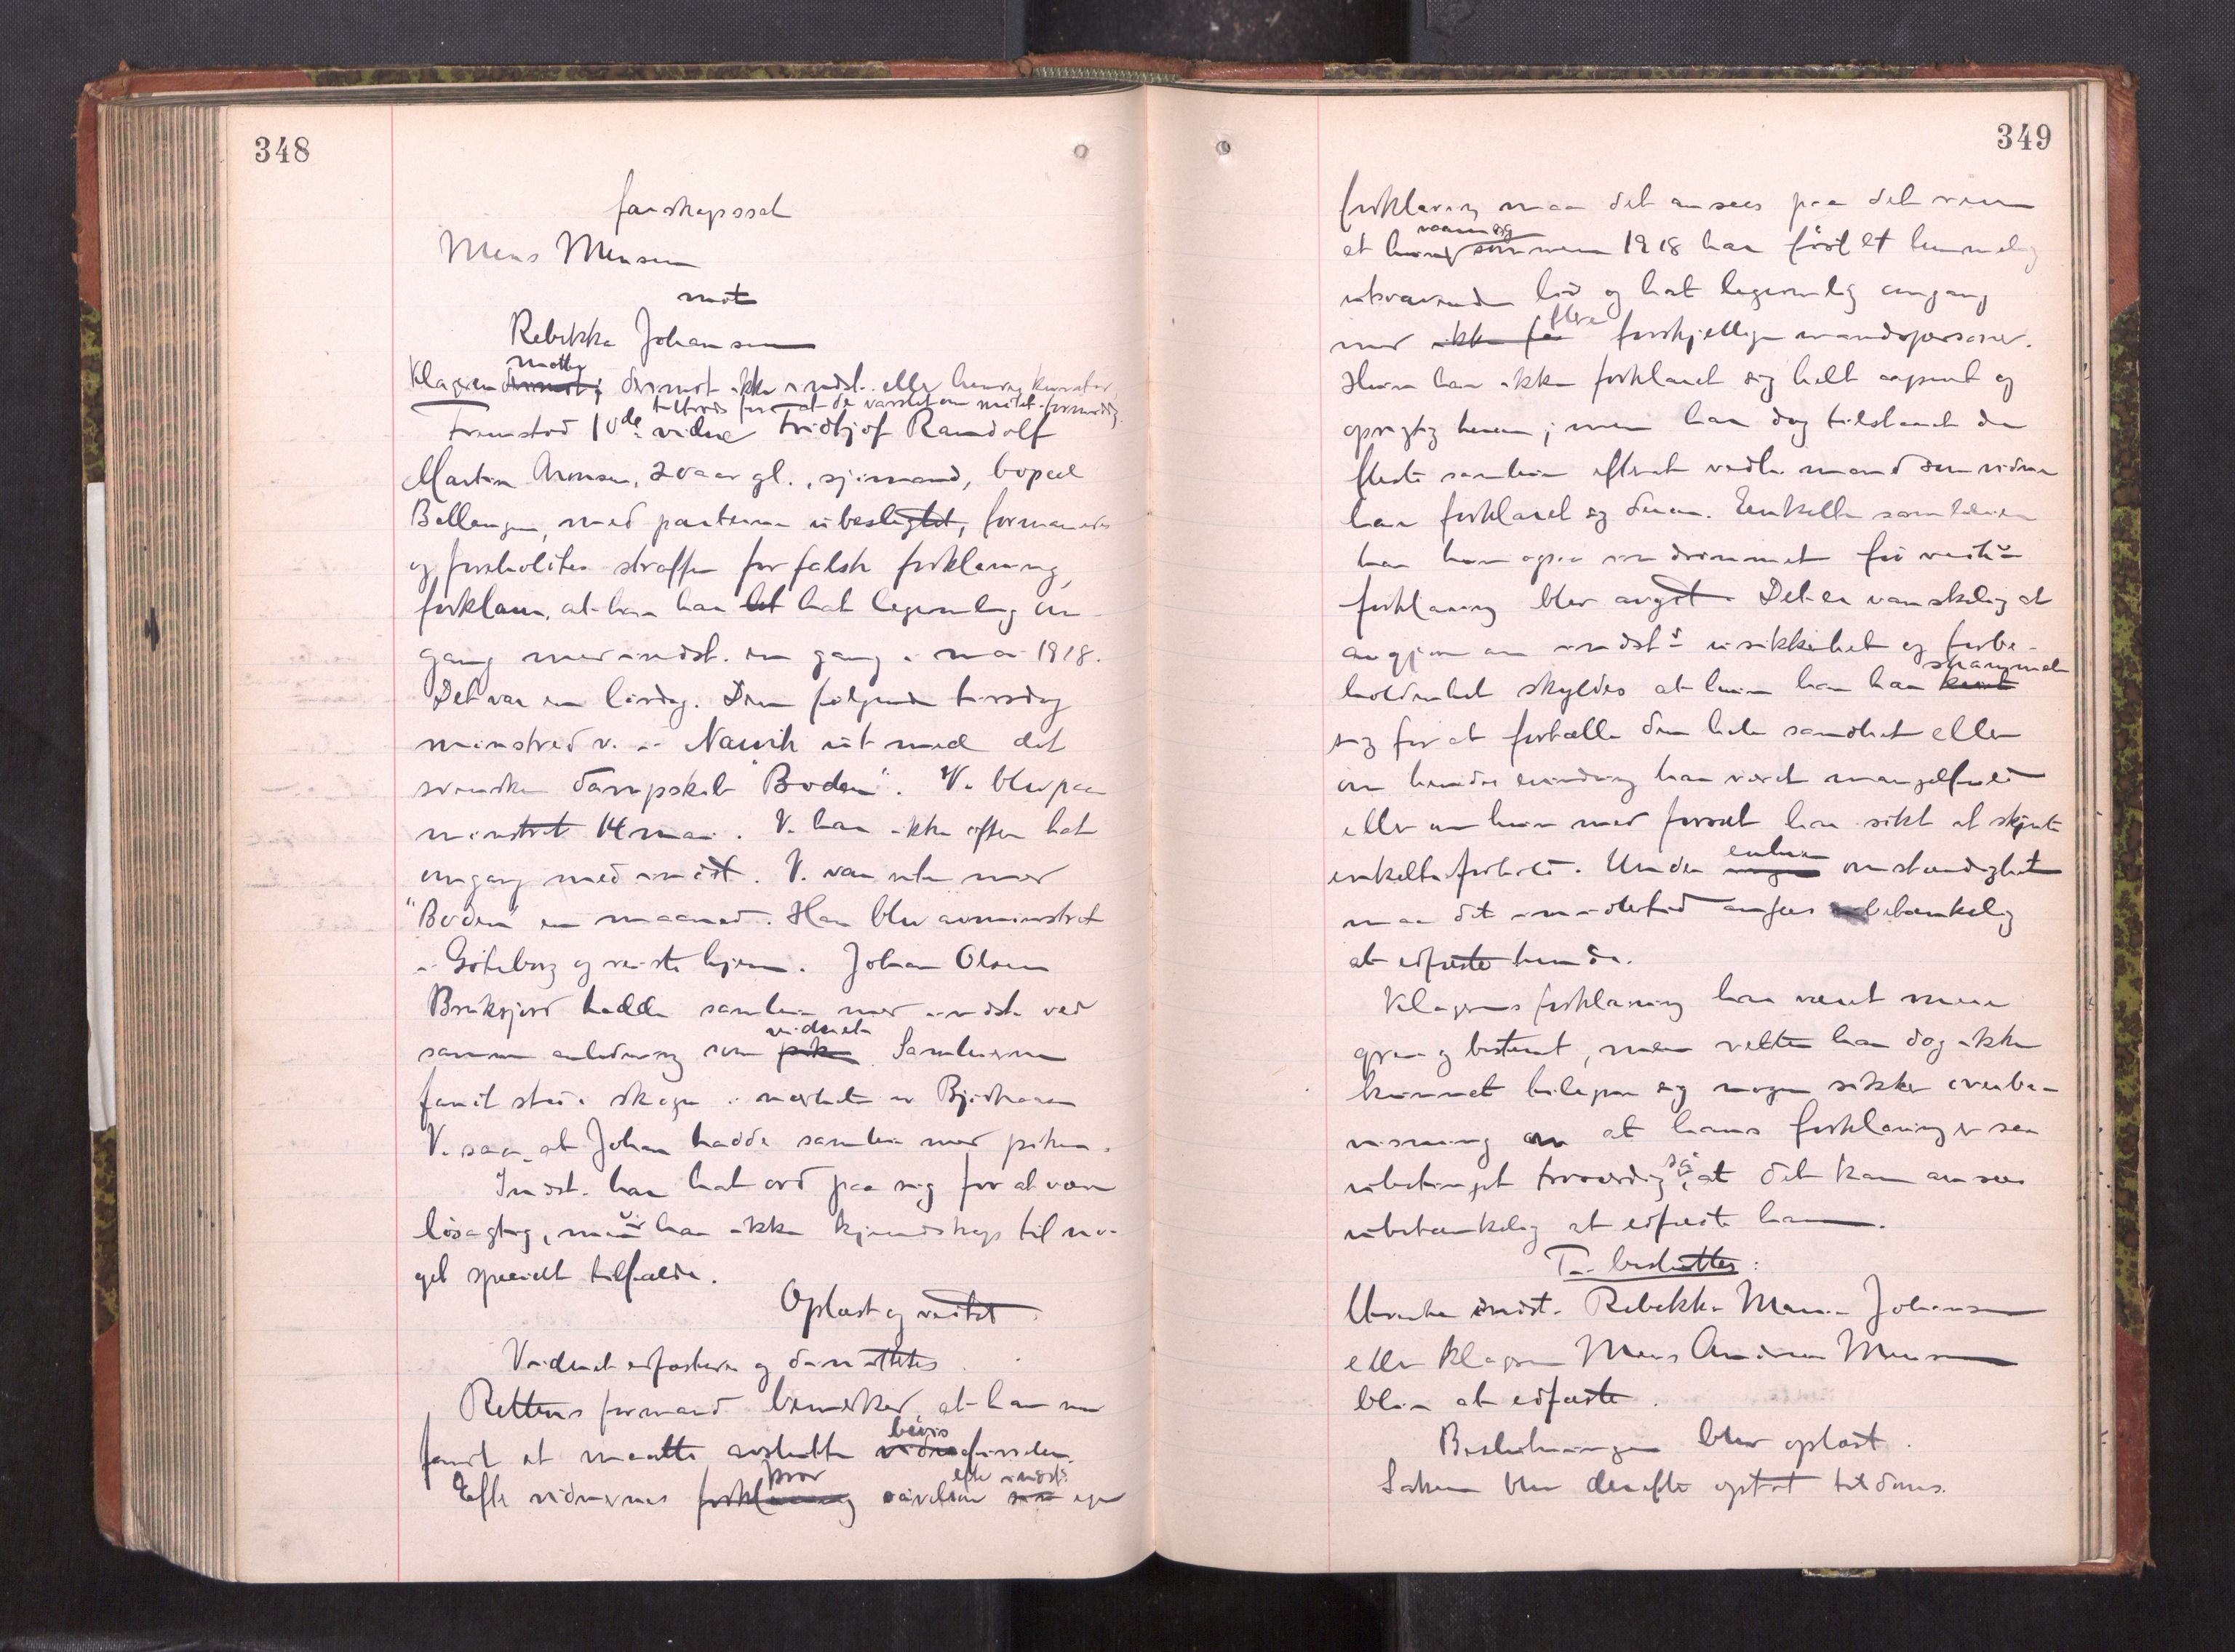 348
farskapssak
Mens Mensen
mot
Rebekka Johansen
møtte
Klageren derimot ikke indst. eller hendes kurator,
tiltrods for at de varslet om møtet
Fremstod 10de vidne Fridtjof Ramdolf
Martin Aronsen, 20 aar gl., sjømand, bopæl
Ballangen, med parterne ubeslegtet, formanedes
og foreholdtes straffen for falsk forklaring,
forklarer, at han har hat legemlig om-
gang med indst. en gang i mai 1918.
Det var en lørdag. Den følgende tirsdag
mønstred v. i Narvik ut med det
svenske dampskib "Boden". V. blev paa-
mønstret 14 mai. V. har ikke oftere hat
omgang med indst. V. var ute med
"Boden" en maaned. Han blev avmønstret
i Göteborg og reiste hjem. Johan Olsen
hadde samleie med indst. ved
vidnet.
samme anledning som piken Samleierne
fandt sted i skogen i nærheten av
V. saa, at Johan hadde samleie med piken.
Indst. har hat ord paa sig for at være
løsagtig, men v. har ikke kjendskap til no-
get specielt tilfælde.
Oplæst og vedtat
Vidnet edfæstedes og dimitteres.
Rettens formand bemerker, at han nu
bevis
fandt at maatte avslutte vidneførselen.
prov efter indst.s
Efter vidnernes forklaring såvelsom sin egen
349
forklaring maa det ansees paa det rene
at hun sommeren 1918 har ført et temmelig
utsvævende liv og hat legemlig omgang
flere
med ikke faa forskjellige mandspersoner.
Hun har ikke forklaret sig helt aapent og
oprigtig herom; men har dog tilstaaet de
fleste samleier efterat vedk. mand som vidne
har forklaret sig derom. Enkelte samleier
har hun ogsaa indrømmet før vedk.s
forklaring blev avgit. Det er vanskelig at
avgjøre om indst.s usikkerhet og forbe-
skammet
holdenhet skyldes at hun har
sig for at fortælle den hele sandhet eller
om hendes erindring har været mangelfuld
eller om hun med forsæt har søkt at skjule
enkelte forhold. Under omstændigheter
maa det imidlertid ansees betænkelig
at edfæste hende.
Klagerens forklaring har været mere
grei og bestemt, men retten har dog ikke
kunnet bilægge sig nogen sikker overbe-
visning om at hans forklaring er saa
så
ubetinget troværdig, at det kan ansees
ubetænkelig at edfæste ham.
Ti besluttes:
Hverken indst. Rebekka Marie Johansen
eller klageren Mens Andreas Mensen
blir at edfæste.
Beslutningen blev oplæst.
Saken blev derefter optat til doms.